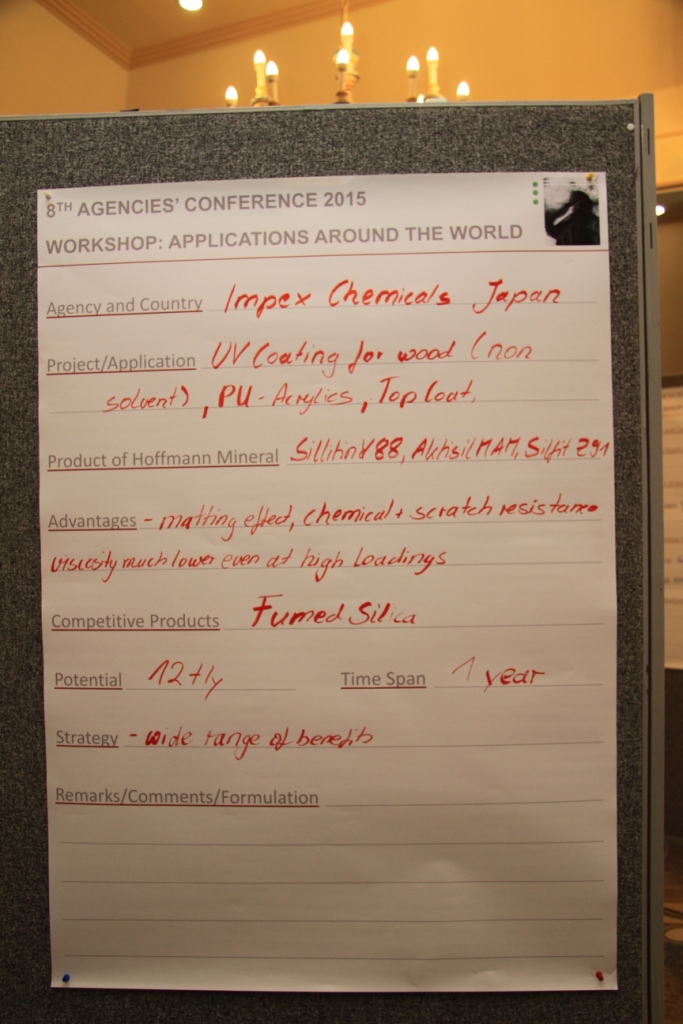 8TH AGENCIES' CONFERENCE 2015
WORKSHOP: APPLICATIONS AROUND THE WORLD
Agency and Country Impex Chemicals Japan
Project/Application UV Coating for wood (non
solvent), PU-Acrylics, Top Coat,
Product of Hoffmann Mineral Sillitin V88, Aktisil MAM, Silfit Z91
Advantages - matting effect, chemical + scratch resistance
viscosity much lower even at high loadings
Competitive Products Fumed Silica
Potential 12 t/y Time Span 1 year
Strategy - wide range of benefits
Remarks/Comments/Formulation